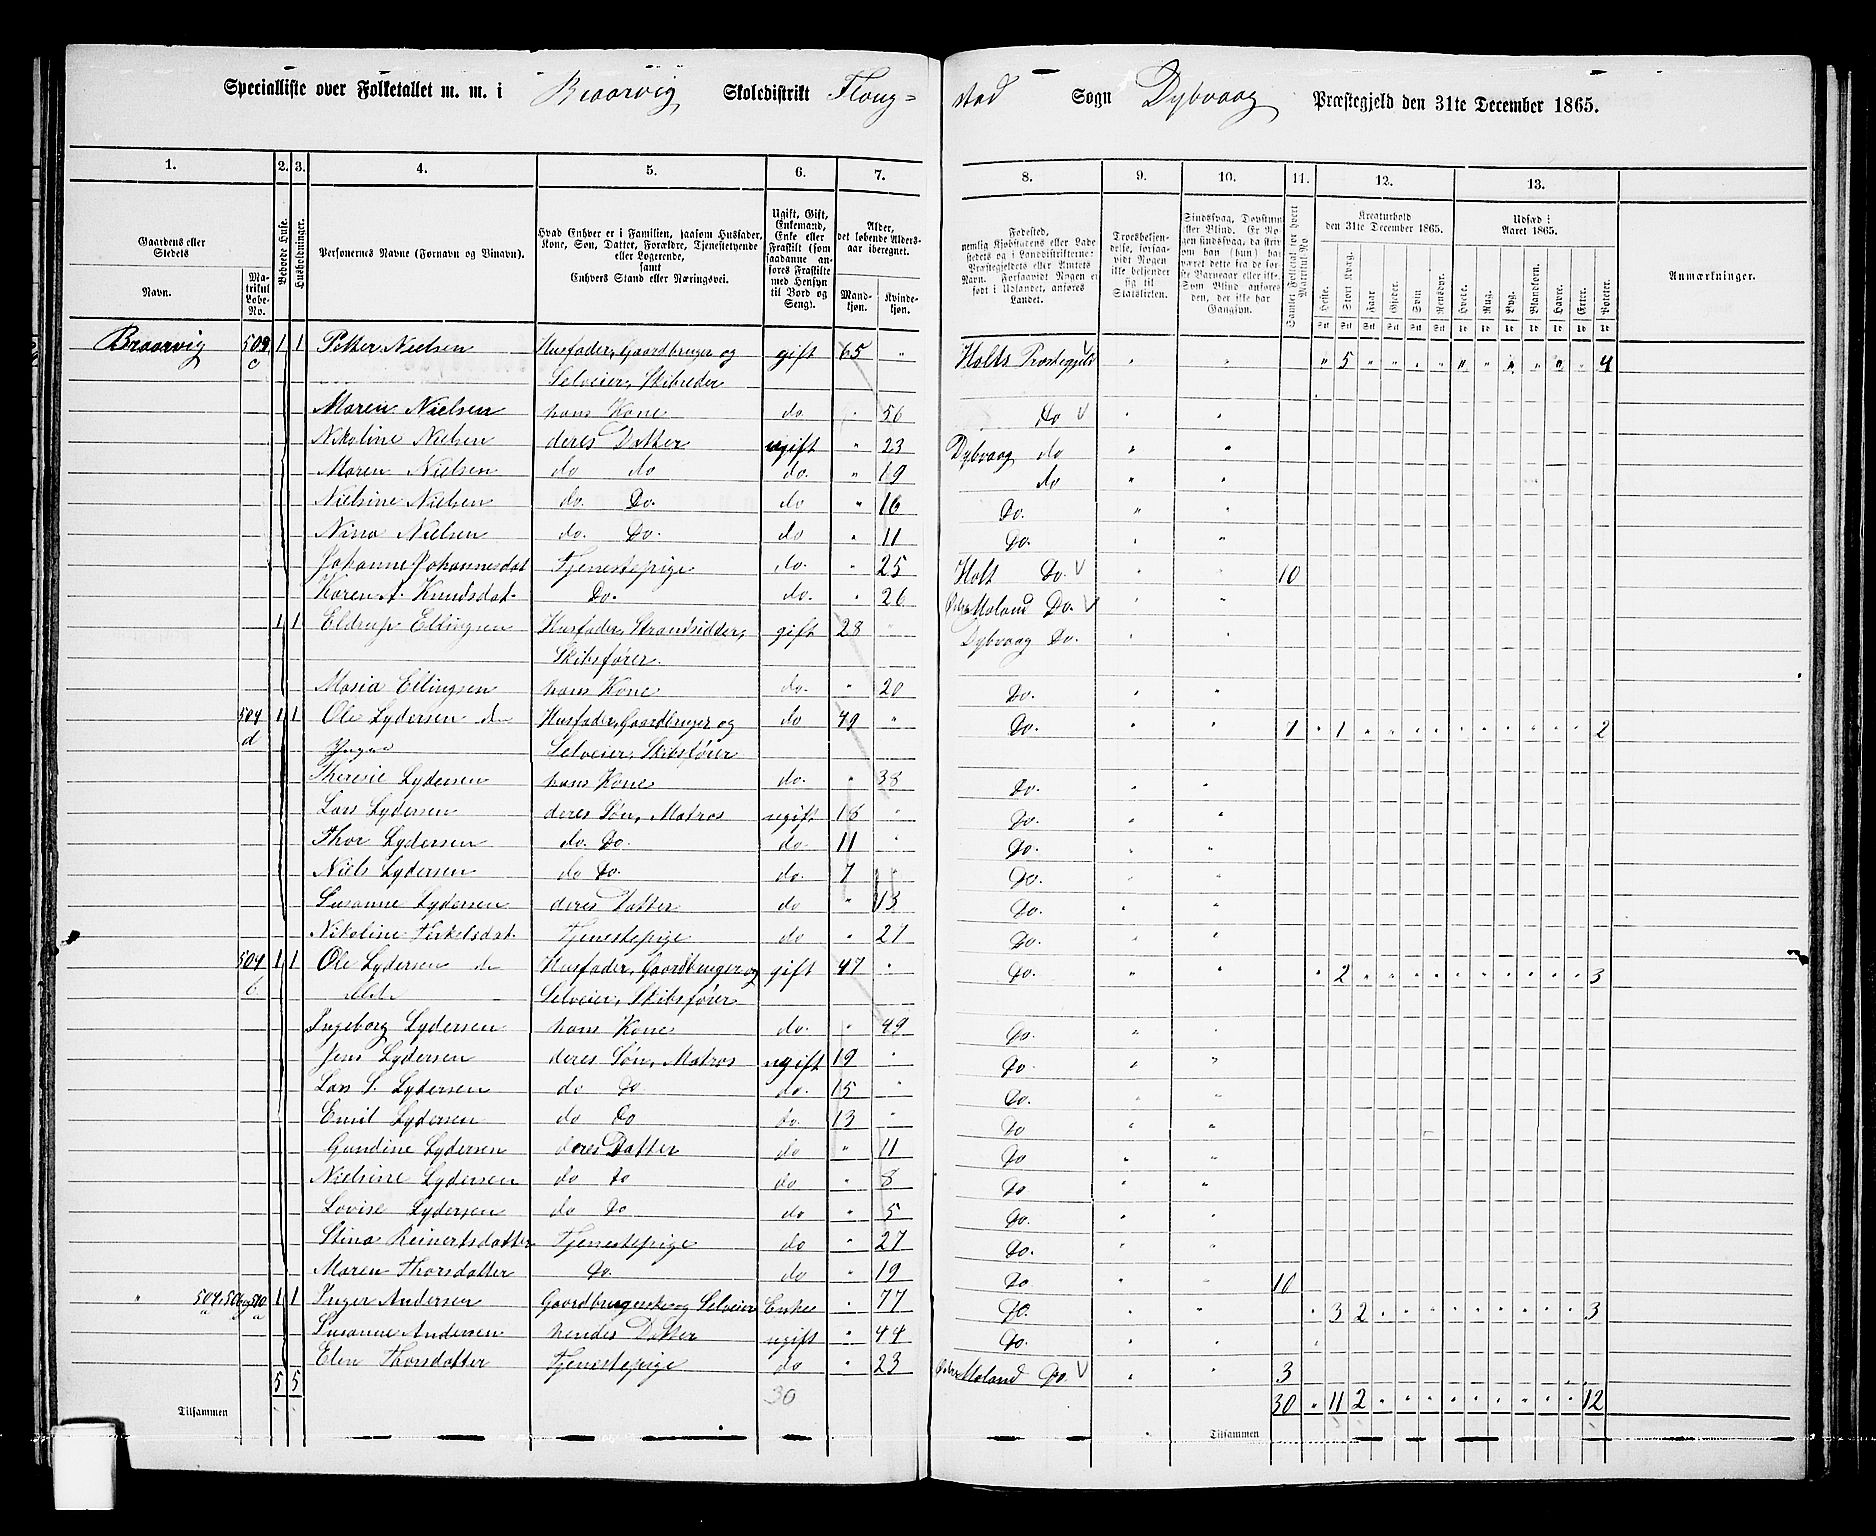 Specialliste over Folketallet m. m. i Braarvig Skoledistrikt Flang=
stad Sogn Dybvaag Præstegjeld den 31te December 1865.
1. 2. 3. 4. 5. 6. 7. 8. 9. 10. 11. 12. 13.
Gaardens eller Stedets
Navn.
Matrikul Løbe-No.
Beboede Huse.
Husholdninger.
Personernes Navne (Fornavn og Tilnavn).
Hvad Enhver er i Familien, saasom Husfader, Kone, Søn, Datter, Forældre, Tjenestetyende eller Logerende, samt Enhvers Stand eller Næringsvei.
Ugift, Gift, Enkemand, Enke eller Fraskilt (som saadanne anføres Fraskilte med Hensyn til Bord og Seng).
Alder, det løbende Aldersaar iberegnet.
Mandkjøn.
Kvindekjøn.
Fødested, nemlig Kjøbstadens eller Ladestedets og i Landdistrikterne: Præstegjeldets eller Amtets Navn. Forsaavidt Nogen er født i Udlandet, anføres Landet.
Troesbekjendelse, forsaavidt Nogen ikke bekjender sig til Statskirken.
Samlet Folketal for hvert Matrikul-No
Kreaturhold den 31te December 1865.
Udsæd i Aaret 1865.
Heste. Stort Kvæg. Faar. Gjeder. Svin. Rensdyr. Hvede. Rug. Byg. Blandkorn. Havre. Erter. Poteter.
Anmærkninger.
Braarvig 509 c 1 1 Petter Nielsen Husfader, Gaardbruger og gift 65 " Holds Præstegjeld " " " 5 " " " " " " " " " " 4
Selveier, Skibreder
Maren Nielsen hans Kone do. " 56 Do " "
Nikoline Nielsen deres Datter ugift " 23 Dybvaag do " "
Maren Nielsen do do do. " 19 do " "
Nielsine Nielsen do. Do. do " 16 Do. " "
Nina Nielsen do. Do. do " 11 Do. " "
Johanne Johannesdat Tjenestepige do. " 25 Holt Do. " " 10
Karen A. Knudsdat. Do. do. " 26 Østre Moland Do. " "
1 1 Eldrup Ellingsen Husfader, Strandsidder, gift 28 " Dybvaag Do. " "
Skibsfører.
Maria Ellingsen hans Kone do. " 20 Do. " "
504 d 1 1 Ole Lydersen den Husfader, Gaardbruger og do 49 " Do. " " 7 " 1 " " " " " " " " " " 2
Yngre Selveier, Skibsfører
Theresie Lydersen hans Kone do. " 38 Do. " "
Lars Lydersen deres Søn, Matros ugift 18 " Do. " "
Thor Lydersen do. Do. do. 11 " Do. " "
Niels Lydersen do Do. do. 7 " Do. " "
Susanne Lydersen deres Datter do " 13 Do. " "
Nikoline Terkelsdat. Tjenestepige do " 21 Do. " "
504 b 1 1 Ole Lydersen de Husfader, Gaardbruger og gift 47 " Do. " " " 2 " " " " " " " " " " 3
Selveier, Skibsfører
Ingeborg Lydersen hans Kone do. " 49 Do. " "
Jens Lydersen deres Søn, Matros ugift 19 " Do. " "
Lars S. Lydersen do Do do. 15 " Do. " "
Emil Lydersen do Do Do. 13 " Do " "
Gundine Lydersen deres Datter do " 11 Do " "
Nielsine Lydersen do Do do " 8 Do " "
Lovise Lydersen do Do do " 5 Do. " "
Stina Reinertsdatter Tjenestepige do " 27 Do. " "
Maren Thorsdatter Do. do " 19 Do " " 10
" 1 1 Inger Andersen Gaardbrugerske og Selveier Enke " 77 Do. " " " 3 2 " " " " " " " " " 3
Susanne Andersen hendes Datter ugift " 44 Do. " "
Elen Thorsdatter Tjenestepige do " 23 Østre Moland Do. " " 3
5 5 30 30 " 11 2 " " " " " " " " " 12
Tilsammen Tilsammen